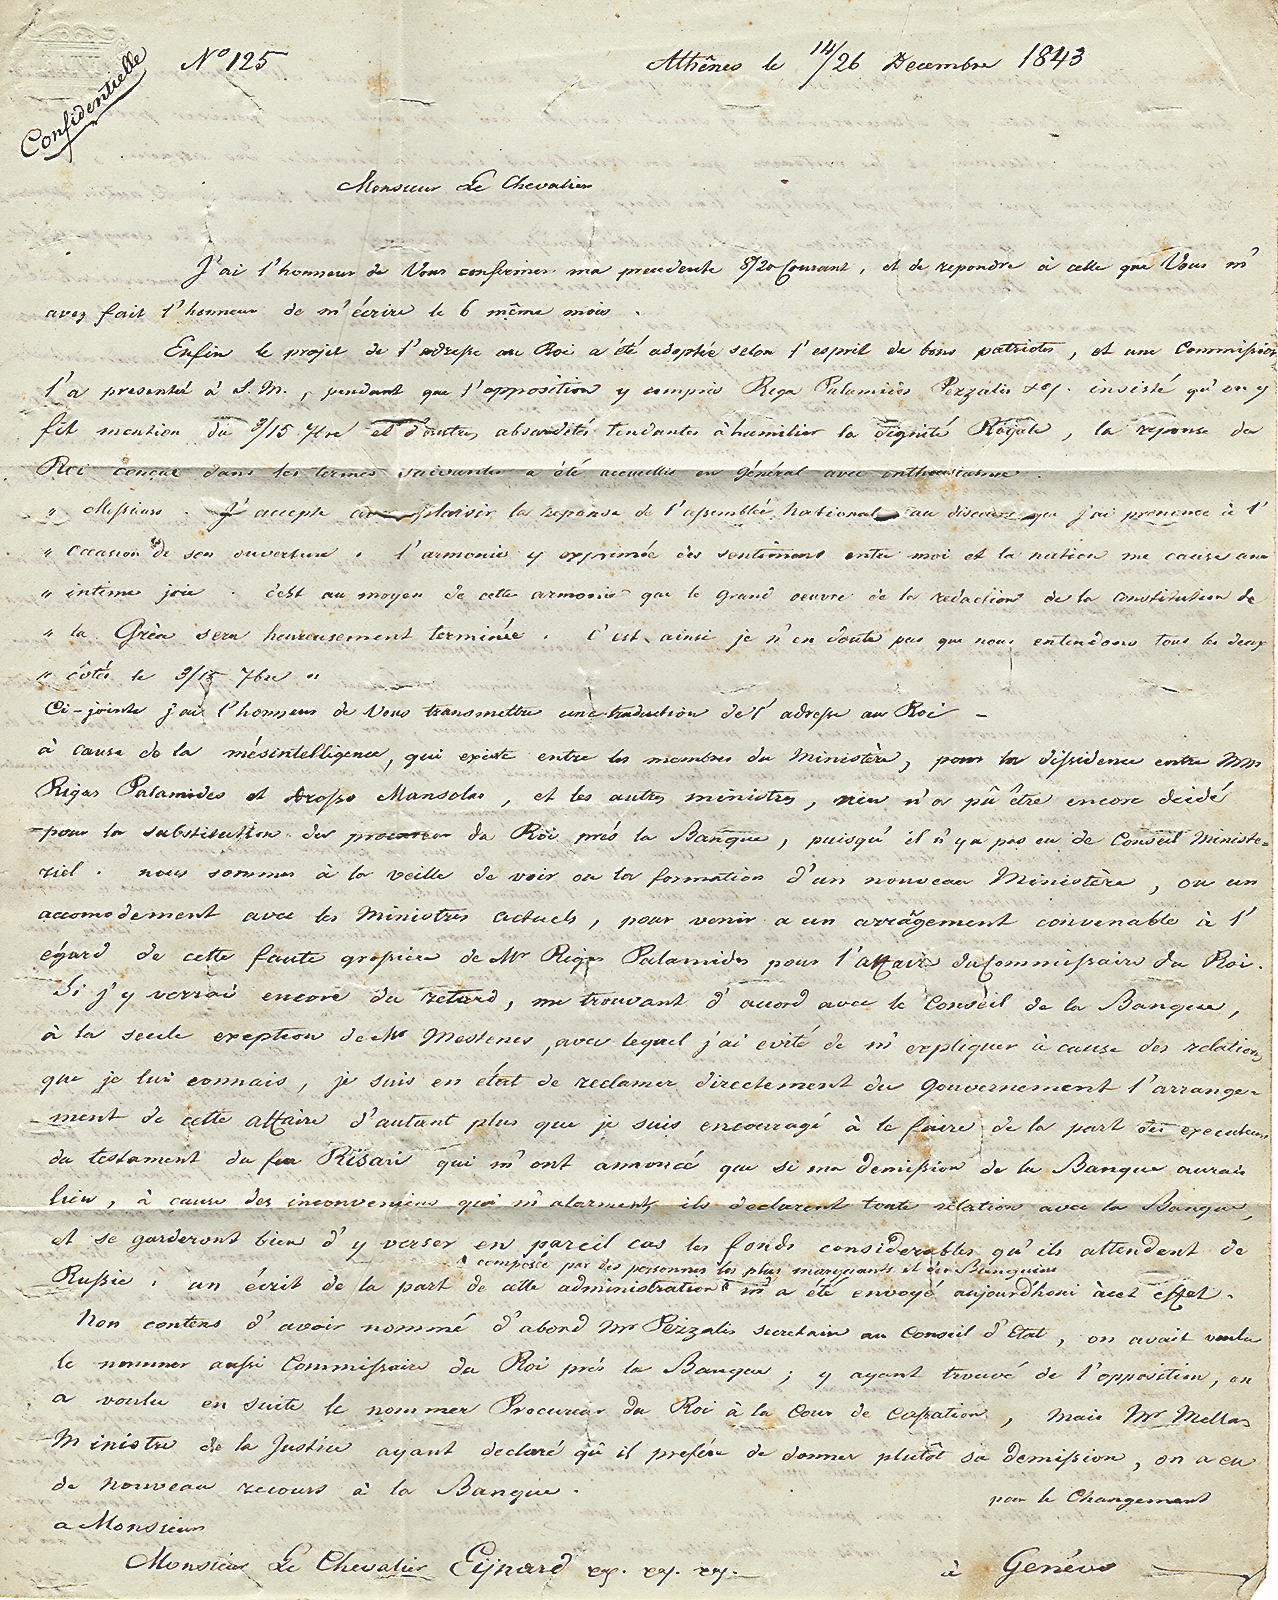 Confidentielle
Nº 125
Athênes le 14/26 Decembre 1843
Monsieur Le Chevalier
J'ai l'honneur de Vous confirmer ma precedente 8/20 Courant, et de repondre à celle que Vous m'
avez fait l'honneur de m'écrire le 6 même mois.
Enfin le projet de l'adresse au Roi a été adoptée selon l'esprit de bons patriotes, et une Commission
l'a presenté à S.M., pendant que l'opposition y compris Riga Palamides Pezzalis insisté qu'on y
fit mention du 3/15 7bre et d'autres absurdités tendantes à humilier la dignité Royale, la reponse du
Roi conçue dans les termes suivantes a été accueillie en général avec enthousiasme.
" Messieurs. J'accepte avec plaisir la reponse de l'assemblée National au discours que j'ai prononcé à l'
" occasion de son ouverture. l'armonie y exprimée des sentimens entre moi et la nation me cause une
" intime joie. c'est au moyen de cette armonie que le grand oeuvre de la redaction de la constitution de
" la Grèce sera heureusement terminée. C'est ainsi je n'en doute pas que nous entendons tous les deux
" côtés le 3/15 7bre "
Ci-jointe j'ai l'honneur de Vous transmettre une traduction de l'adresse au Roi -
à cause de la mésintelligence, qui existe entre les membres du Ministère, pour la dissidence entre MM
Rigas Palamides et Drosso Mansolas, et les autres ministres, rien n'a pû être encore decidé
pour la substitution du procureur du Roi près la Banque, puisqu'il n'y a pas eu de Conseil Ministe=
riel. nous sommes à la veille de voir ou la formation d'un nouveau Ministère, ou un
accomodement avec les Ministres actuels, pour venir a un arrâgement convenable à l'
égard de cette faute grossière de Mr Rigas Palamides pour l'affaire du Commissaire du Roi.
Si j'y verrai encore du retard, me trouvant d'accord avec le Conseil de la Banque,
à la seule exeption de Mr Mesteneos, avec lequel j'ai evité de m'expliquer à cause des relations
que je lui connais, je suis en état de reclamer directement du Gouvernement l'arrange-
ment de cette affaire d'autant plus que je suis encouragé à le faire de la part des executeurs
du testament du feu Risari qui m'ont annoncé que si ma demission de la Banque aurais
lieu, à cause des inconveniens qui m'alarment, ils declarent toute relation avec la Banque,
et se garderont bien d'y verser en pareil cas les fonds considerables qu'ils attendent de
composée par des personnes les plus marquants et des Banquiers
Russie. un écrit de la part de cette administration m'a été envoyé aujourdhoui à cet effet.
Non contens d'avoir nommé d'abord Mr Pezzalis secretaire au Conseil d'Etat, on avait voulu
le nommer aussi Commissaire du Roi près la Banque; y ayant trouvé de l'opposition, on
a voulu en suite le nommer Procureur du Roi à la Cour de Cassation, mais Mr Mellas
Ministre de la Justice ayant declaré qu'il prefére de donner plutôt sa demission, on a eu
de nouveau recours à la Banque.
pour le Changement
a Monsieur
Monsieur Le Chevalier Eijnard
à Genéve